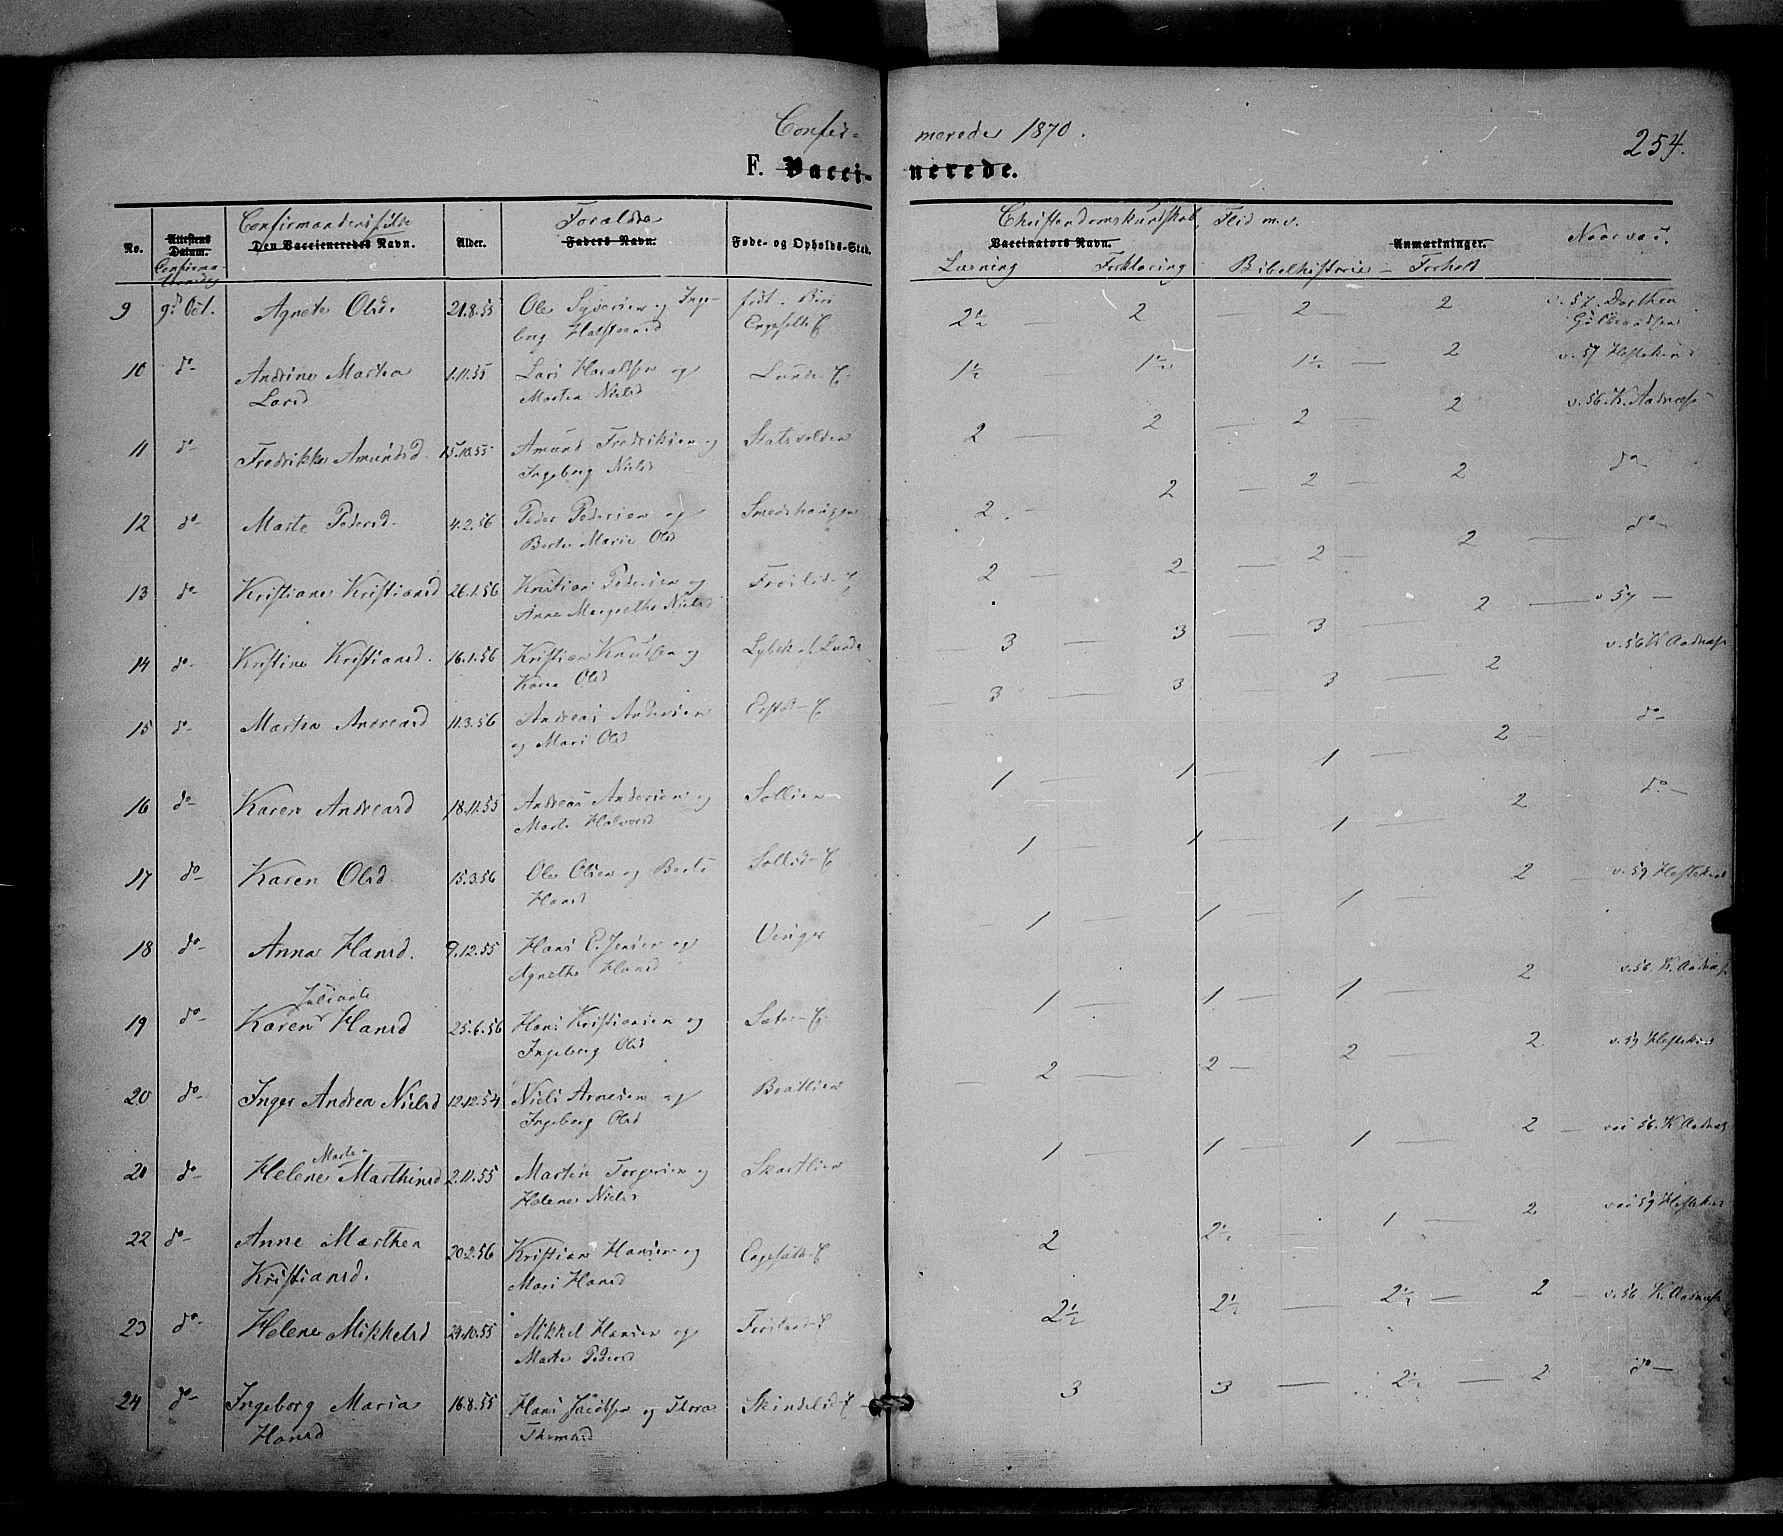 Confir- merede 1870.
254.
F. Vacci- nerede.
Confirmandens fulde Forældre Christendomskundskab, Flid m.v.
No. Attestens Datum. Den Vaccineredes Navn. Alder. Faders Navn. Føde- og Opholds-Sted. Vaccinators Navn. Anmærkninger. Naar vac.
Confirma- Læsning Forklaring Bibelhistorie Forhold
9 9d Oct. Agnete Olsd. 21.8.55 Ole Syversen og Inge- født i Biri 2½ — 2 — 2 — 2 v. 57. Dorthea
borg Halstensd Engesetb. E Gulbrandsen
10 do Andrine Marthea 1.11.55 Lars Haraldsen og Lunde E. 1½ — 1½ — 1½ — 2 v. 57
Larsd Marthea Nielsd
11 do Fredrikke Amundsd. 15.10.55 Amund Fredriksen og Statsvolden 2 — 2 — 2 — 2 v. 56. K. Aadnæss
Ingeborg Nielsd
12 do Marte Pedersd. 4.2.56 Peder Pedersen og Smedshaugen 2 — 2 — 2 — 2 do
Berte Marie Olsd
13 do Kristiane Kristiansd 26.1.56 Kristian Pedersen og Frøislid E 2 — 2 — 2 — 2 do
Anne Margrethe Nielsd
14 do Kristine Kristiansd. 16.1.56 Kristian Knutsen og Lybek u. Lunde 3 — 3 — 3 — 2 v. 57
Karen Olsd
15 do Marthea Andreasd 11.3.56 Andreas Andersen 3 — 3 — 3 — 2 v. 56 K Aadnæss
og Mari Olsd
16 do Karen Andreasd 18.11.55 Andreas Andersen og Sollien 1 — 1 — 1 — 2 do
Marte Halvorsd
17 do Karen Olsd. 15.3.56 Ole Olsen og Berte Sollid E 1 — 1 — 1 — 2 do
Hansd
18 do Anna Hansd. 9.12.55 Hans C. Jensen og 1 — 1 — 1 — 2 v. 59
Agnethe Hansd
Juliante
19 do Karen Hansd 25.6.56 Hans Kristiansen og Sæter E. 1 — 1 — 1 — 2 v. 56. K. Aadnæss
Ingeborg Olsd
20 do Inger Andrea Nielsd 12.12.54 Niels Arnesen og Bratlien 2 — 2 — 2 — 2 v. 59
Ingeborg Olsd
Marte
21 do Helene Marthinsd 2.11.55 Martin Torgersen og Skartlien 1 — 1 — 1 — 2 vac 56. K Aadnæs
Helene Nielsd
22 do Anne Marthea 20.2.56 Kristian Hansen og Engesetb. E 2 2½ — 1 — 2 vac 59
Kristiansd. Mari Hansd
23 do Helene Mikkelsd 24.10.55 Mikkel Hansen og 2½ 2½ — 2½ — 2 v. 56 K. Aadnæss
Marte Pedersd
24 do Ingeborg Maria 16.8.55 Hans Jacobsen og Thora Skindslid E 3 3 — 2½ — 2 do
Hansd Thomasd